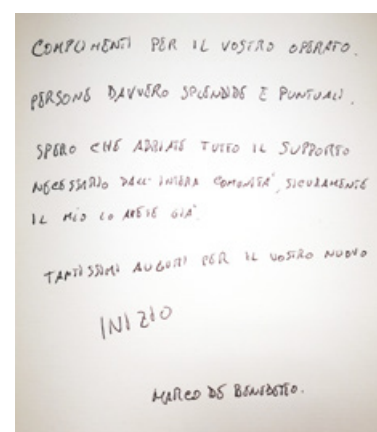 COMPLIMENTI PER IL VOSTRO OPERATO.
PERSONE DAVVERO SPLENDIDE E PUNTUALI.
SPERO CHE ABBIATE TUTTO IL SUPPORTO
NECESSARIO DALL'INTERA COMUNITÀ, SICURAMENTE
IL MIO LO AVETE GIÀ.
TANTISSIMI AUGURI PER IL VOSTRO NUOVO
INIZIO
MARCO DE BENEDETTO.